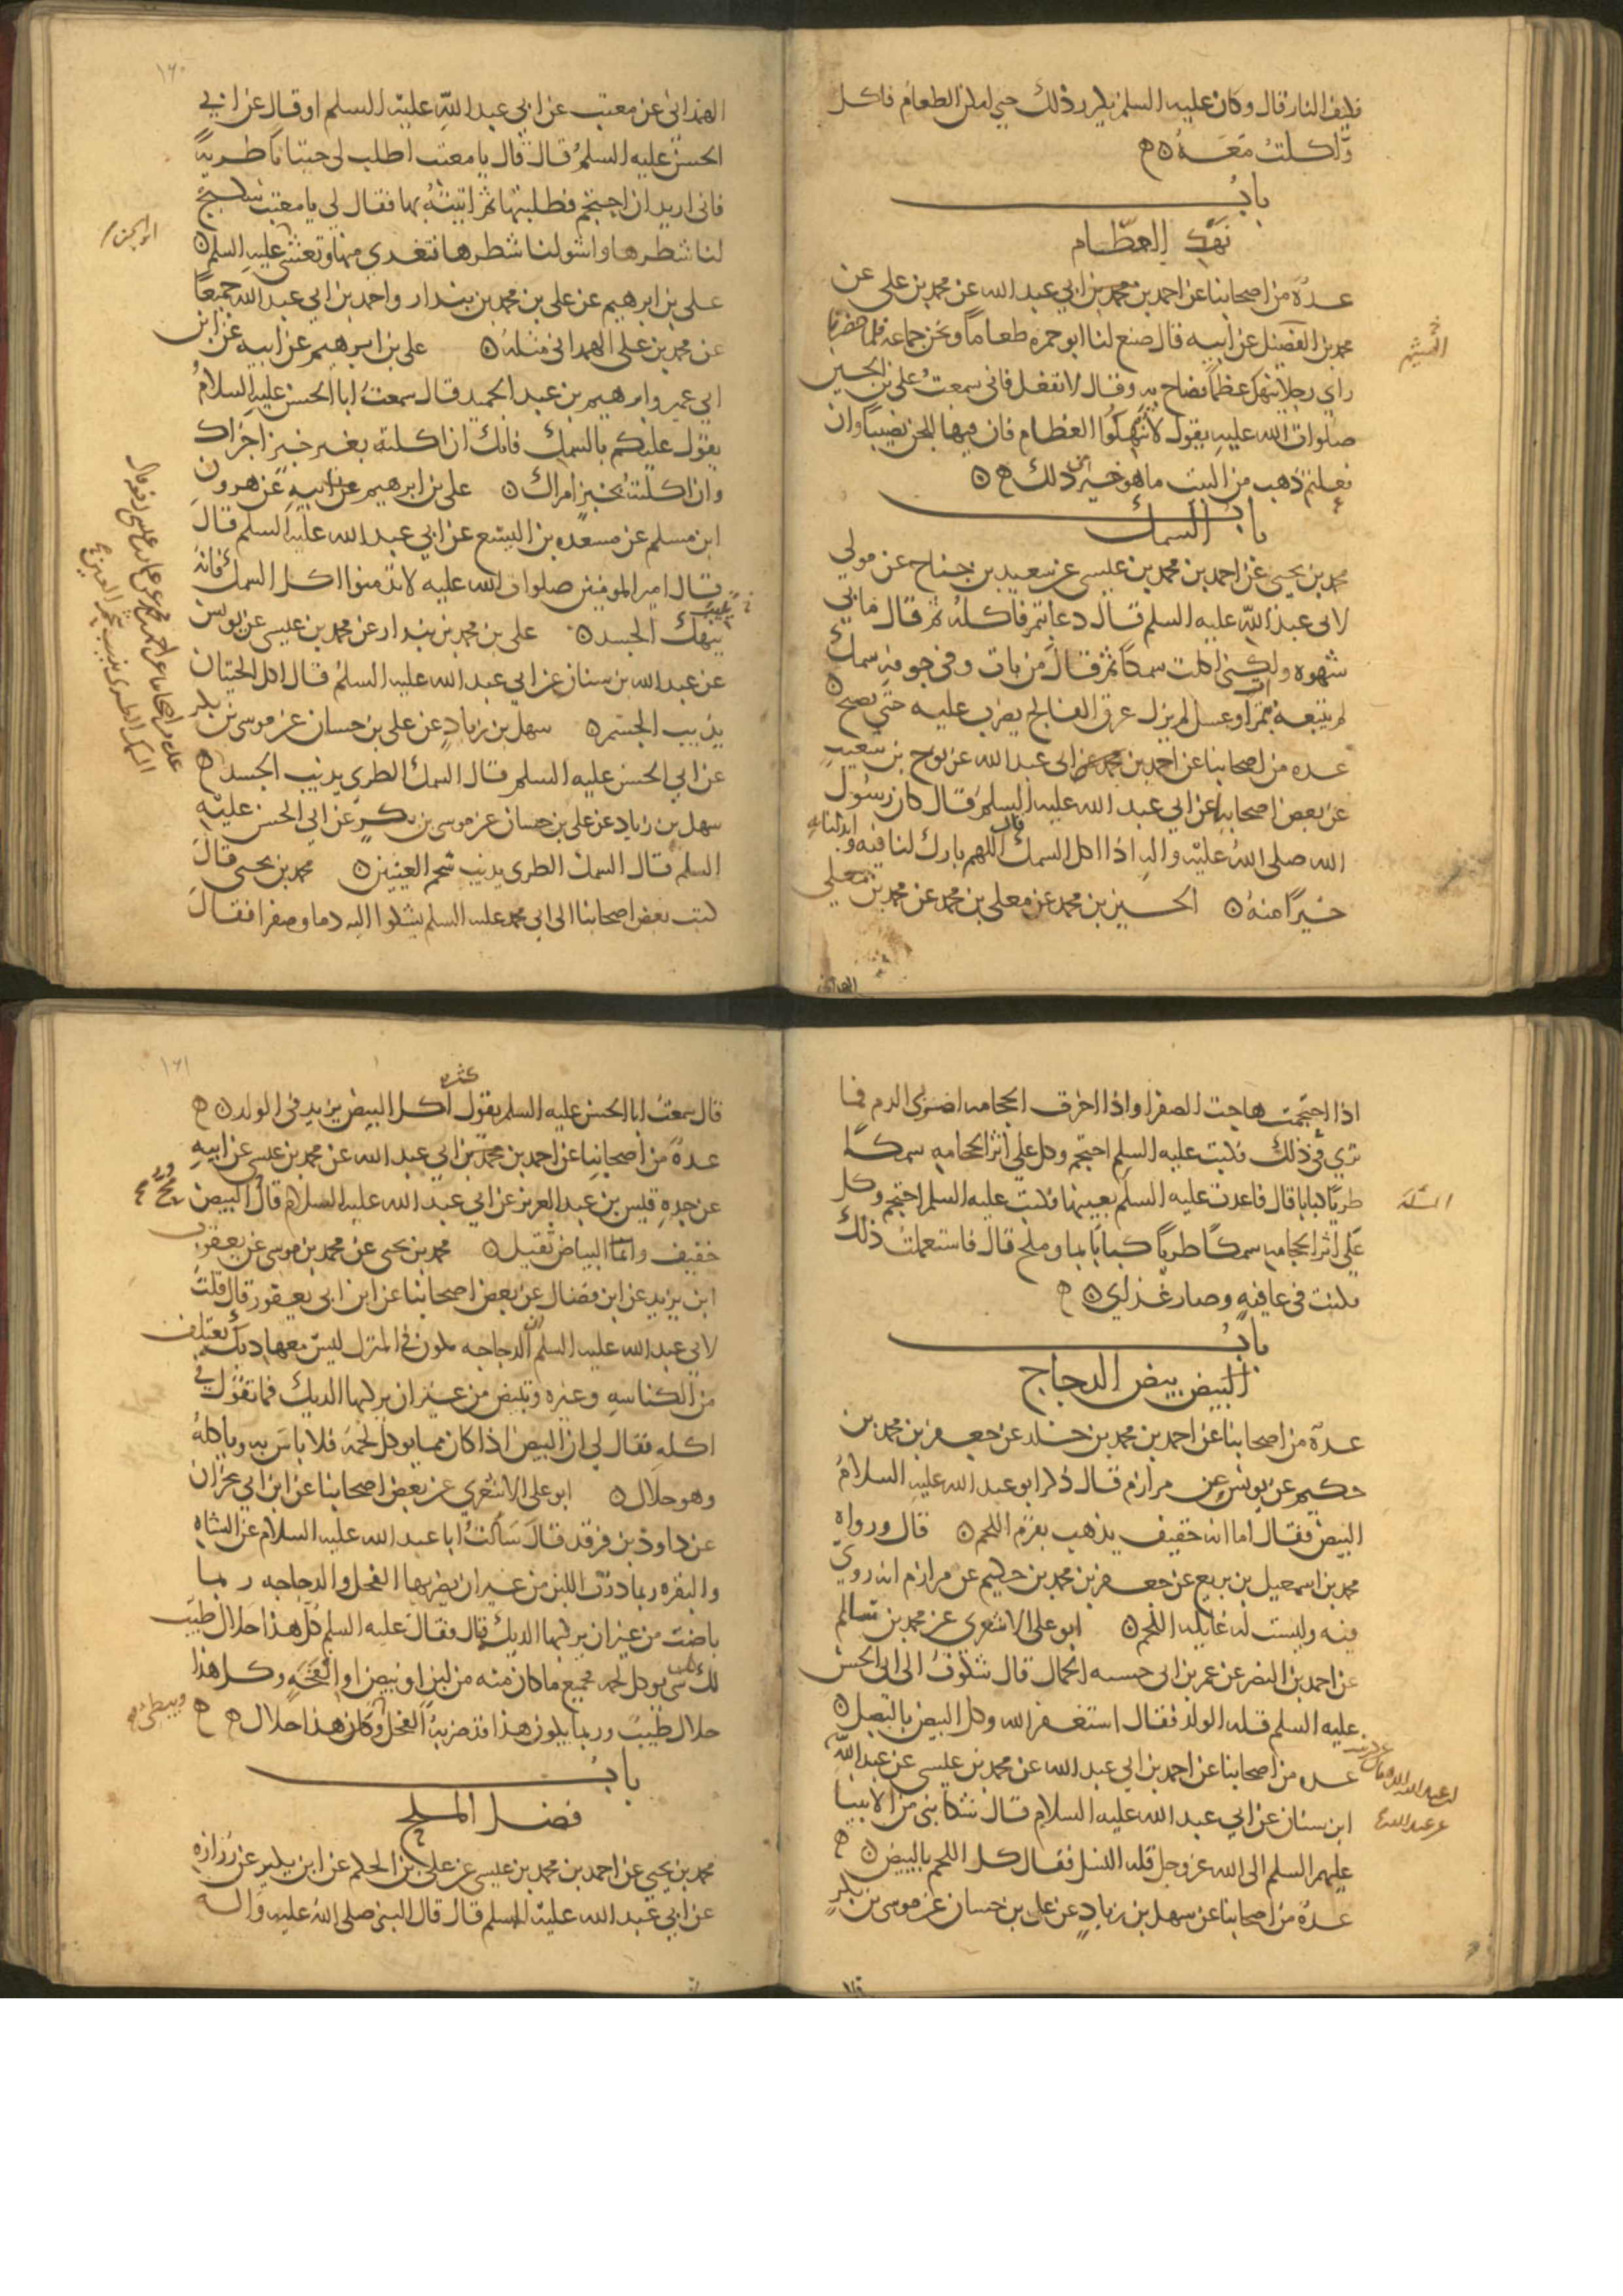 فكيف النار قال وكان عليه السلم يكرر ذلك حتى امكن الطعام فاكل
واكلت معه
باب
نهك العظام
عدة من اصحابنا عن احمد بن محمد بن ابي عبد الله عن محمد بن علي عن
الهيثم
محمد بن الفضيل عن ابيه قال صنع لنا ابو حمزه طعاما ونحن جماعه فلما حضرنا
راي رجلا ينهك عظما فصاح به وقال لا تفعل فاني سمعت علي بن الحسين
صلوات الله عليه يقول لا تنهكوا العظام فان فيها للجن نصيبا وان
فعلتم ذهب من البيت ما هو خير من ذلك
باب السمك
محمد بن يحيى عن احمد بن محمد بن عيسى عن سعيد بن جناح عن مولي
لابي عبد الله عليه السلم قال دعا بتمر فاكله ثم قال ما بي
شهوه ولكني اكلت سمكا ثم قال من بات وفي جوفه سمك
لم يتبعه بتمر او عسل لم يزل عرق الفالج يضرب عليه حتى يصبح
عده من اصحابنا عن احمد بن محمد عن ابي عبد الله عن نوح بن شعيب
عن بعض اصحابنا عن ابي عبد الله عليه السلم قال كان رسول
الله صلى الله عليه واله اذا اكل السمك قال اللهم بارك لنا فيه وابدلنا به
خيرا منه الحسين بن محمد عن معلى بن محمد عن محمد بن علي
الهمداني
١٦٠
الهمداني عن معتب عن ابي عبد الله عليه السلم او قال عن ابي
الحسن عليه السلم قال قال يا معتب اطلب لي حيتانا طرية
فاني اريد ان احتجم فطلبتها ثم اتيته بها فقال لي يا معتب سكبج
لنا شطرها واشو لنا شطرها فتغدى منها وتعشى عليه السلم
ابو الحسن
علي بن ابرهيم عن علي بن محمد بن بندار واحمد بن ابي عبد الله جميعا
عن محمد بن علي الهمداني مثله علي بن ابرهيم عن ابيه عن ابن
ابي عمير وابرهيم بن عبد الحميد قال سمعت ابا الحسن عليه السلام
يقول عليكم بالسمك فانك ان اكلته بغير خبز اجزاك
وان اكلته بخبز امراك علي بن ابرهيم عن ابيه عن هرون
ابن مسلم عن مسعده بن اليسع عن ابي عبد الله عليه السلم قال
قال امير المومنين صلوات الله عليه لا تدمنوا اكل السمك فانه
ينهك الجسد علي بن محمد بن بندار عن محمد بن عيسى عن يونس
يذيب
عن عبد الله بن سنان عن ابي عبد الله عليه السلم قال اكل الحيتان
يذيب الجسم سهل بن زياد عن علي بن حسان عن موسى بن بكر
عن ابي الحسن عليه السلم قال السمك الطري يذيب الجسد
سهل بن زياد عن علي بن حسان عن موسى بن بكر عن ابي الحسن عليه
السلم قال السمك الطري يذيب شحم العينين محمد بن يحيى قال
كتب بعض اصحابنا الى ابي محمد عليه السلم يشكوا اليه دما وصفرا فقال
السمك الطري يذيب شحم العينين
اذا احتجمت هاجت الصفرا واذا اخرت الحجامه اضرني الدم فما
تري في ذلك فكتب عليه السلم احتجم وكل على اثر الحجامه سمكا
طريا كبابا قال فاعدت عليه السلم بعينها فكتب عليه السلم احتجم وكل
المسئلة
على اثر الحجامه سمكا طريا كبابا بما وملح قال فاستعملت ذلك
فكنت في عافيه وصار غذاي
باب
البيض بيض الدجاج
عدة من اصحابنا عن احمد بن محمد بن خلد عن جعفر بن محمد بن
حكيم عن يونس عن مرازم قال ذكر ابو عبد الله عليه السلام
البيض فقال اما انه خفيف يذهب بقرم اللحم قال ورواه
محمد بن اسمعيل بن بزيع عن جعفر بن محمد بن حكيم عن مرازم انه روي
فيه وليست له غايله اللحم ابو علي الاشعري عن محمد بن سالم
عن احمد بن النضر عن عمر بن ابي حسنه الجمال قال شكوت الى ابي الحسن
عليه السلم قله الولد فقال استغفر الله وكل البيض بالبصل
عده من اصحابنا عن احمد بن ابي عبد الله عن محمد بن عيسى عن عبد الله
ابن سنان عن ابي عبد الله عليه السلام قال شكا نبي من الانبيا
عليهم السلم الى الله عز وجل قله النسل فقال كل اللحم بالبيض
عدة من اصحابنا عن سهل بن زياد عن علي بن حسان عن موسى بن بكر
قال
١٦١
كثره
قال سمعت ابا الحسن عليه السلم يقول اكل البيض يزيد في الولد
عدة من اصحابنا عن احمد بن محمد بن ابي عبد الله عن محمد بن عيسى عن ابيه
عن جده قيس بن عبد العزيز عن ابي عبد الله عليه السلام قال البيض
مح
خفيف واما البياض ثقيل محمد بن يحيى عن محمد بن موسى عن يعقوب
ابن يزيد عن ابن فضال عن بعض اصحابنا عن ابن ابي يعفور قال قلت
لابي عبد الله عليه السلم ان الدجاجه تكون في المنزل ليس معها ديك تعتلف
من الكناسه وغيره وتبيض من غير ان يركبها الديك فما تقول في
اكله فقال لي ان البيض اذا كان مما يوكل لحمه فلا باس به وباكله
وهو حلال ابو علي الاشعري عن بعض اصحابنا عن ابن ابي نجران
عن داوود بن فرقد قال سالت ابا عبد الله عليه السلام عن الشاه
والبقره ربما درت اللبن من غير ان يضربها الفحل والدجاجه ربما
باضت من غير ان يركبها الديك قال فقال عليه السلم كل هذا حلال طيب
لك كل شي يوكل لحمه فجميع ما كان منه من لبن او بيض او انفحه وكل هذا
حلال طيب وربما يكون هذا قد ضربه الفحل وكان هذا حلال
باب
فضل الملح
محمد بن يحيى عن احمد بن محمد بن عيسى عن علي بن الحكم عن ابن بكير عن زراره
عن ابي عبد الله عليه السلم قال قال النبي صلى الله عليه واله